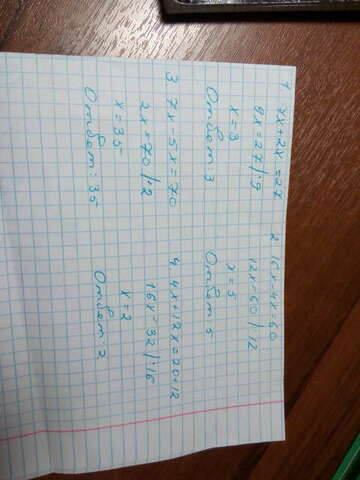 1. 7x+2x=27
9x=27|:9
x=3
Ответ: 3
2. 16x-4x=60
12x=60|:12
x=5
Ответ: 5
3. 7x-5x=70
2x=70|:2
x=35
Ответ: 35
4. 4x+12x=20+12
16x=32|:16
x=2
Ответ: 2